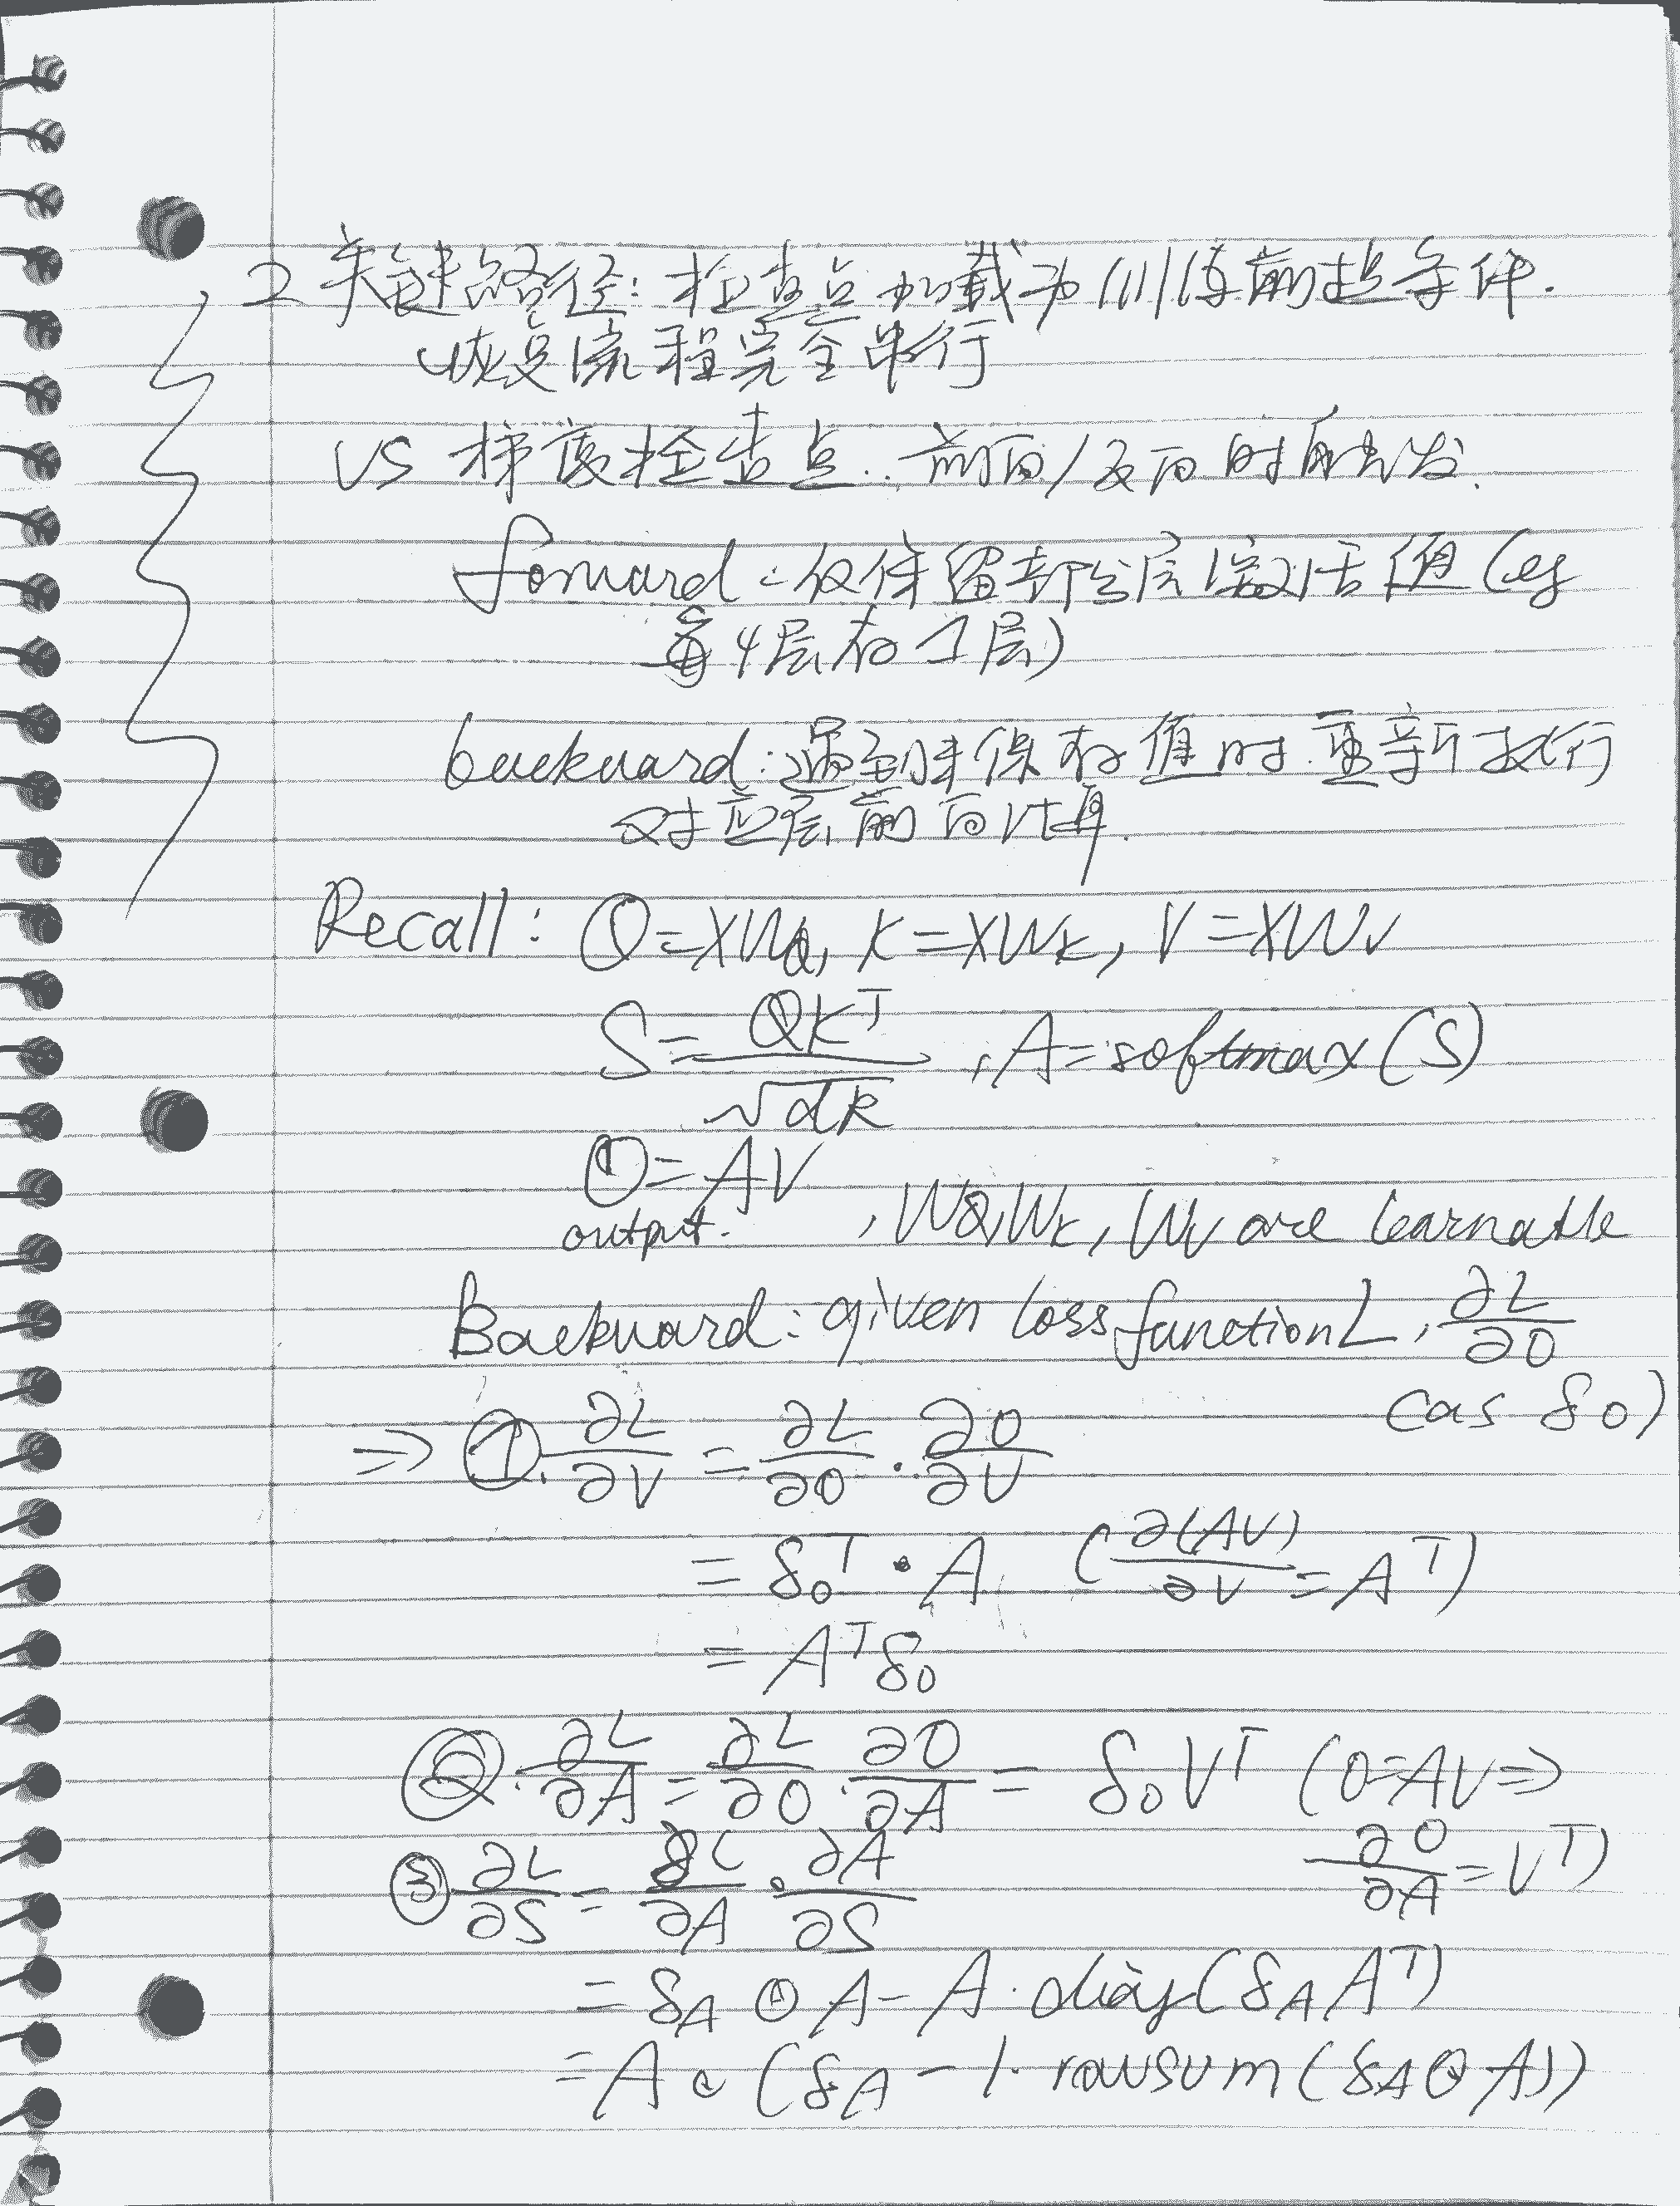 2 关键路径: 检查点加载为训练前提条件.
恢复流程完全串行
VS 梯度检查点: 前向/反向时触发.
forward: 仅保留部分层激活值 (eg
每4层存1层)
backward: 遇到未保存值时. 重新执行
对应层前向计算.
Recall: Q=XW_Q, K=XW_K, V=XW_V
S=QK^T/√dk , A=softmax(S)
O=AV
output. , W_Q, W_K, W_V are learnable
Backward: given loss function L, ∂L/∂O
(as δ_O)
⇒ ① ∂L/∂V = ∂L/∂O · ∂O/∂V
= δ_O^T · A (∂(AV)/∂V = A^T)
= A^T δ_O
② ∂L/∂A = ∂L/∂O · ∂O/∂A = δ_O V^T (O=AV ⇒
∂O/∂A = V^T)
③ ∂L/∂S = ∂L/∂A · ∂A/∂S
= δ_A ⊙ A - A · diag(δ_A A^T)
= A ⊙ (δ_A - 1 · rowsum(δ_A ⊙ A))